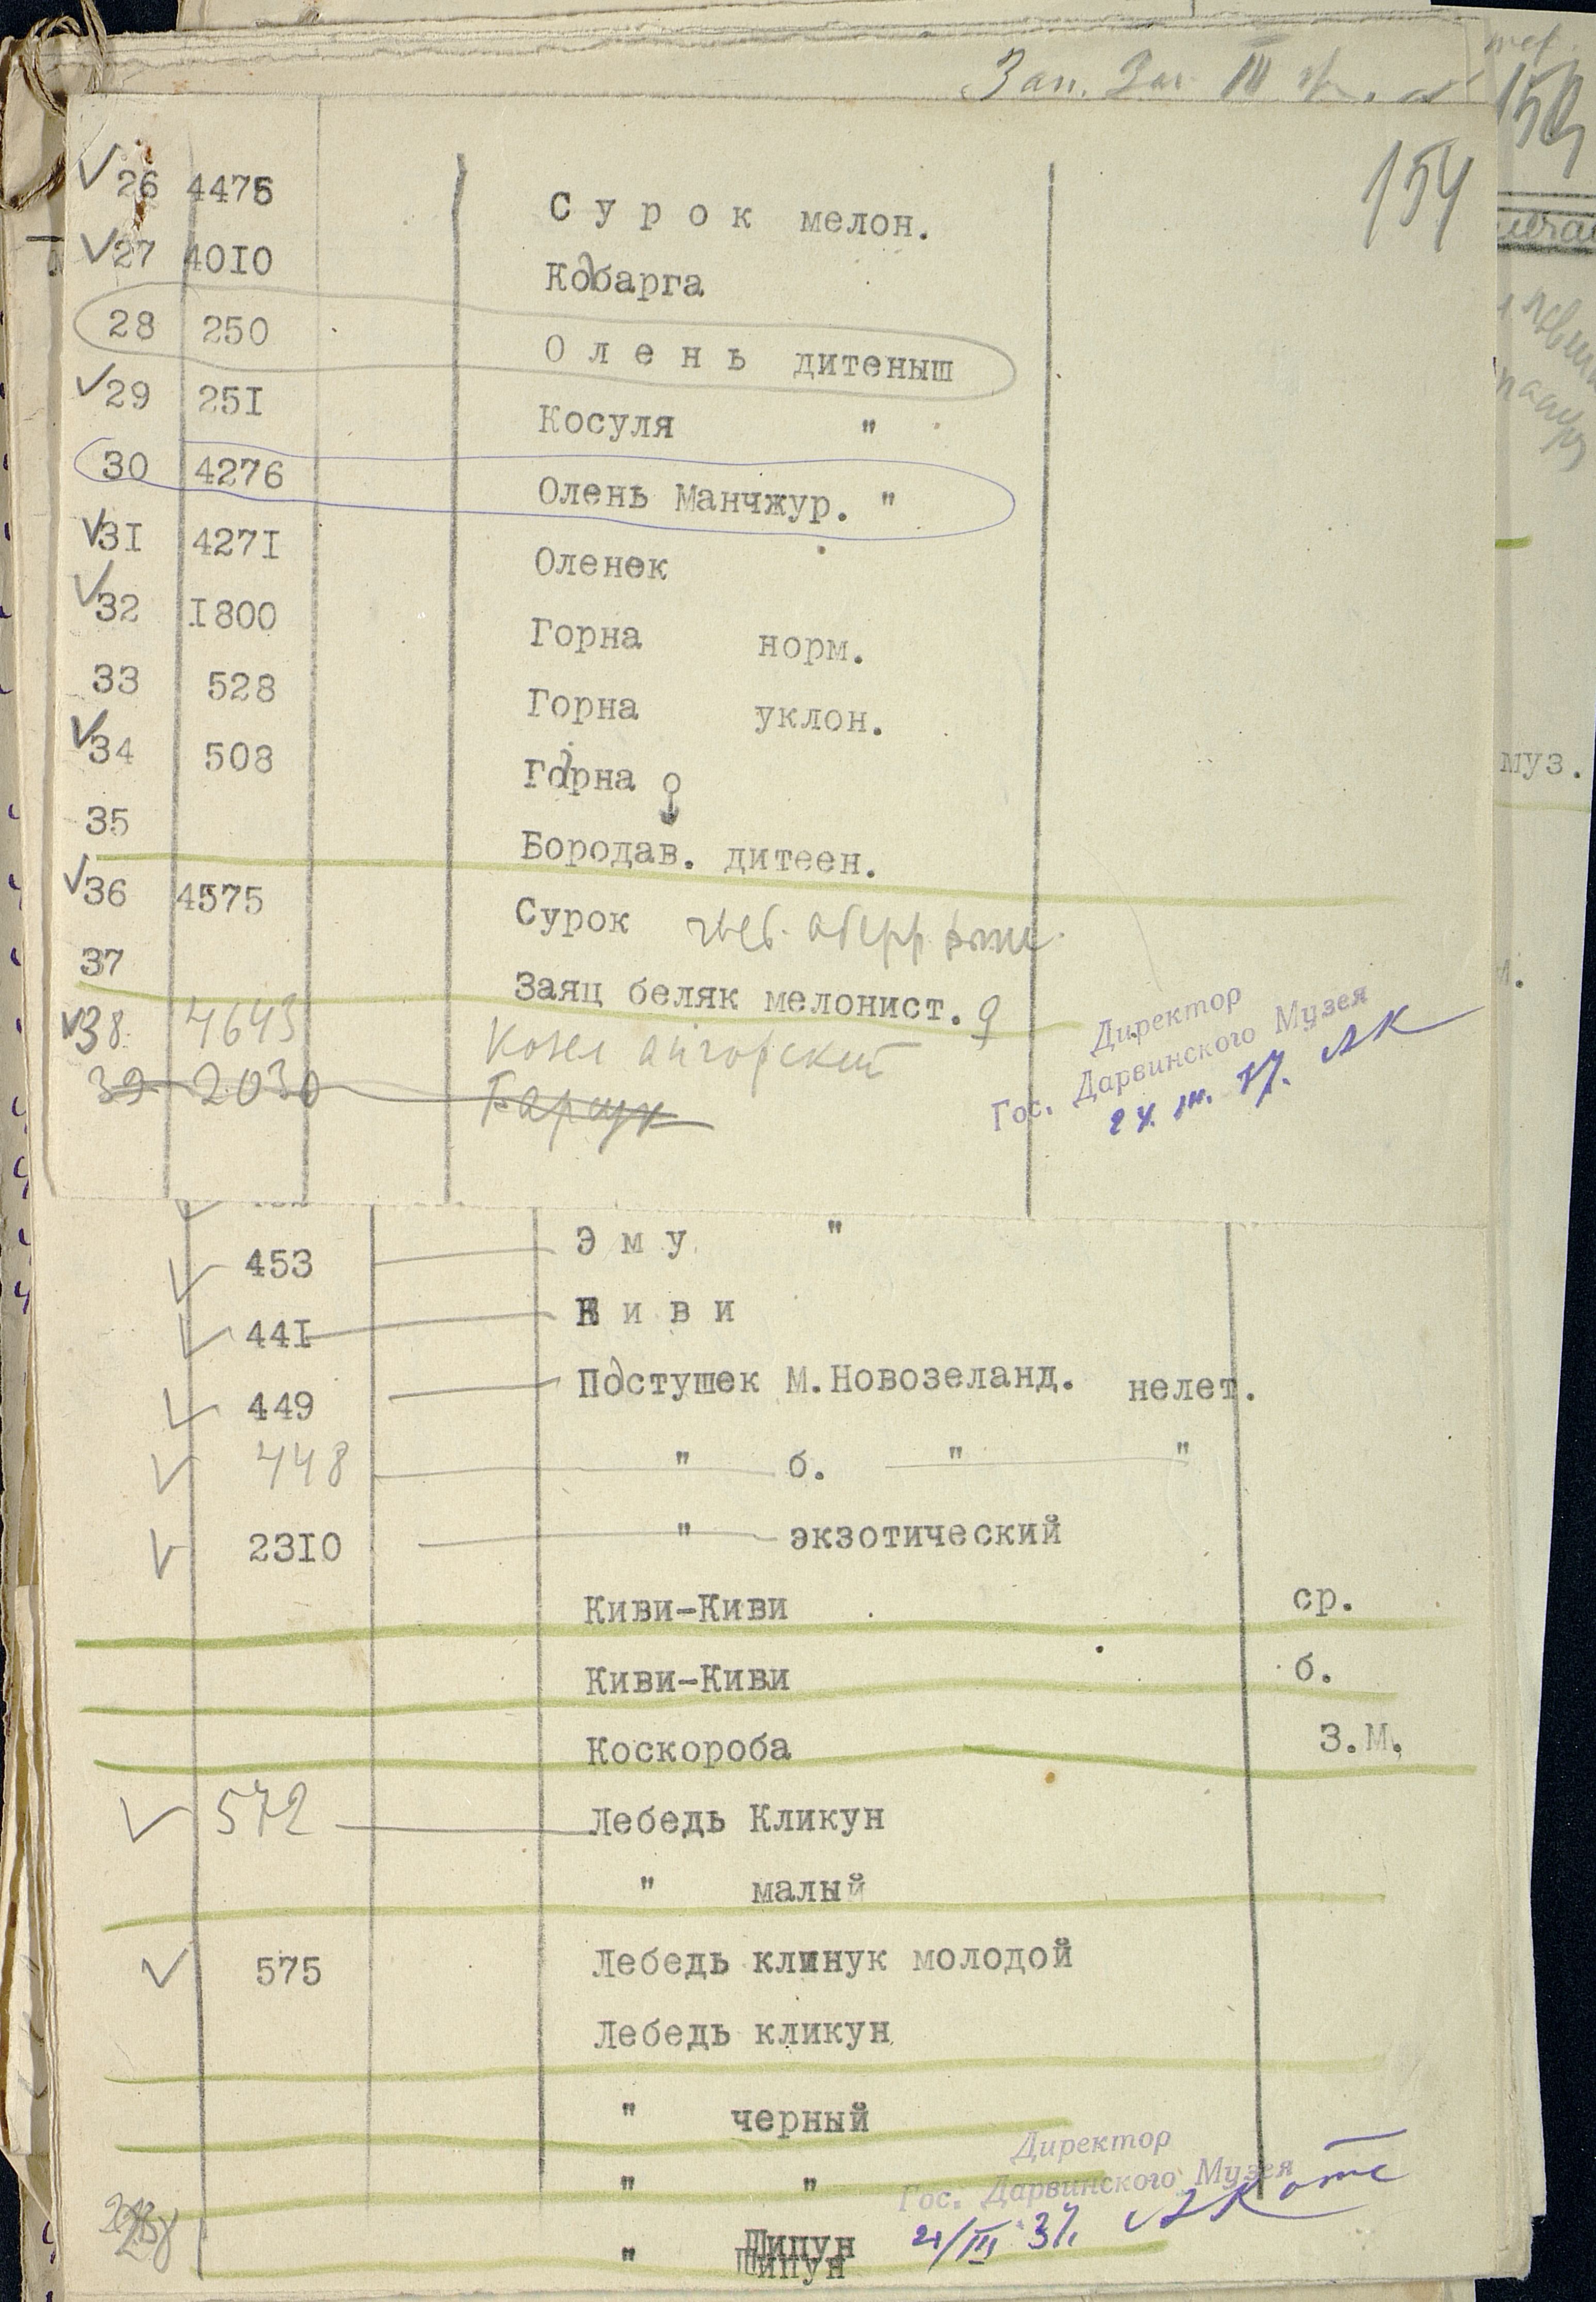 Зап. Зал III
154
26 4475 Сурок мелон.
27 4010 Кабарга
28 250 Олень дитеныш
29 251 Косуля "
30 4276 Олень Манчжур. "
31 4271 Оленек
32 1800 Горна норм.
33 528 Горна уклон.
34 508 Горна ♀
35 Бородав. дитеен.
36 4575 Сурок
37 Заяц беляк мелонист. ♀
38 4643 Козел ангорский
39 2030 Барсук
Директор
Гос. Дарвинского Музея
АК
453 Эму "
441 Киви
449 Пастушек М.Новозеланд. нелет.
448 " б. " "
2310 " экзотический
Киви-Киви ср.
Киви-Киви б.
Коскороба З.М.
572 Лебедь Кликун
" малый
575 Лебедь клинук молодой
Лебедь кликун
" черный
" "
" Шипун
Директор
Гос. Дарвинского Музея
муз.